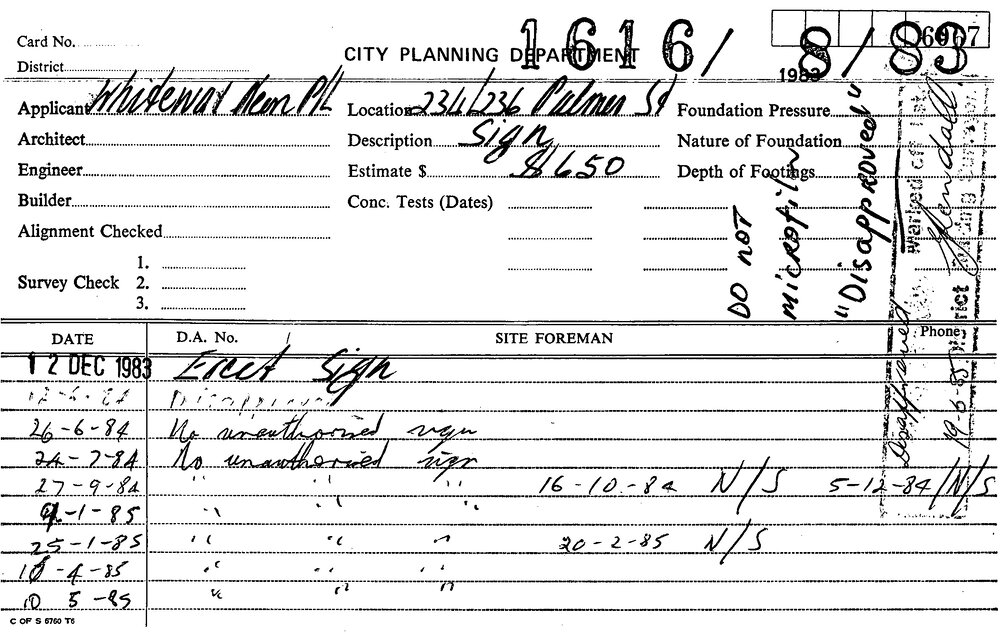 1616/8/83
Card No. 6967
CITY PLANNING DEPARTMENT
District 1983
Applicant Whiteway Neon P/L Location 234/236 Palmer St Foundation Pressure
Architect Description Sign Nature of Foundation
Engineer Estimate $ $650 Depth of Footings
Builder Conc. Tests (Dates)
Alignment Checked
Survey Check 1.
2.
3.
DO NOT
MICROFILM
"Disapproved"
Marked off
Disapproved 19-6-85
DATE D.A. No. SITE FOREMAN Phone
12 DEC 1983 Erect Sign
Disapproved
26-6-84 No unauthorised sign
24-7-84 No unauthorised sign
27-9-84 " " " 16-10-84 N/S 5-12-84/N/S
-1-85 " " "
25-1-85 " " " 20-2-85 N/S
-4-85 " " "
10 5-85 " " "
C OF S 5760 T6